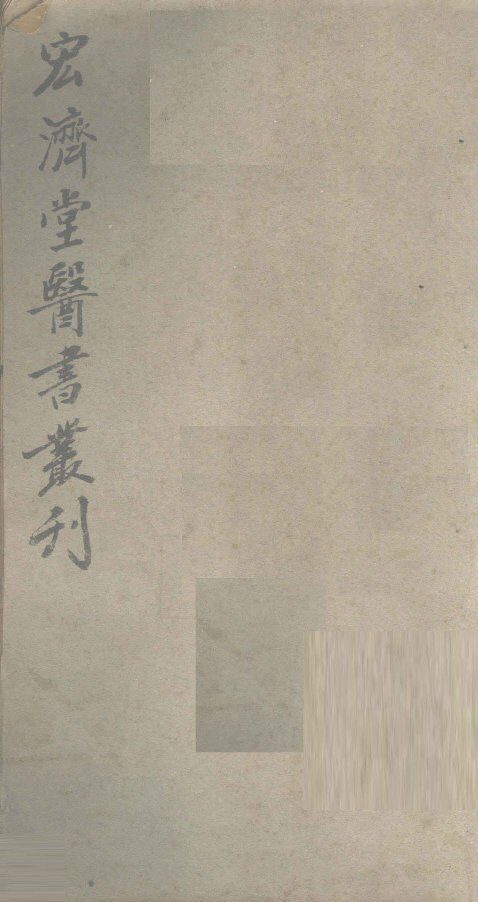 宏濟堂醫書叢刊